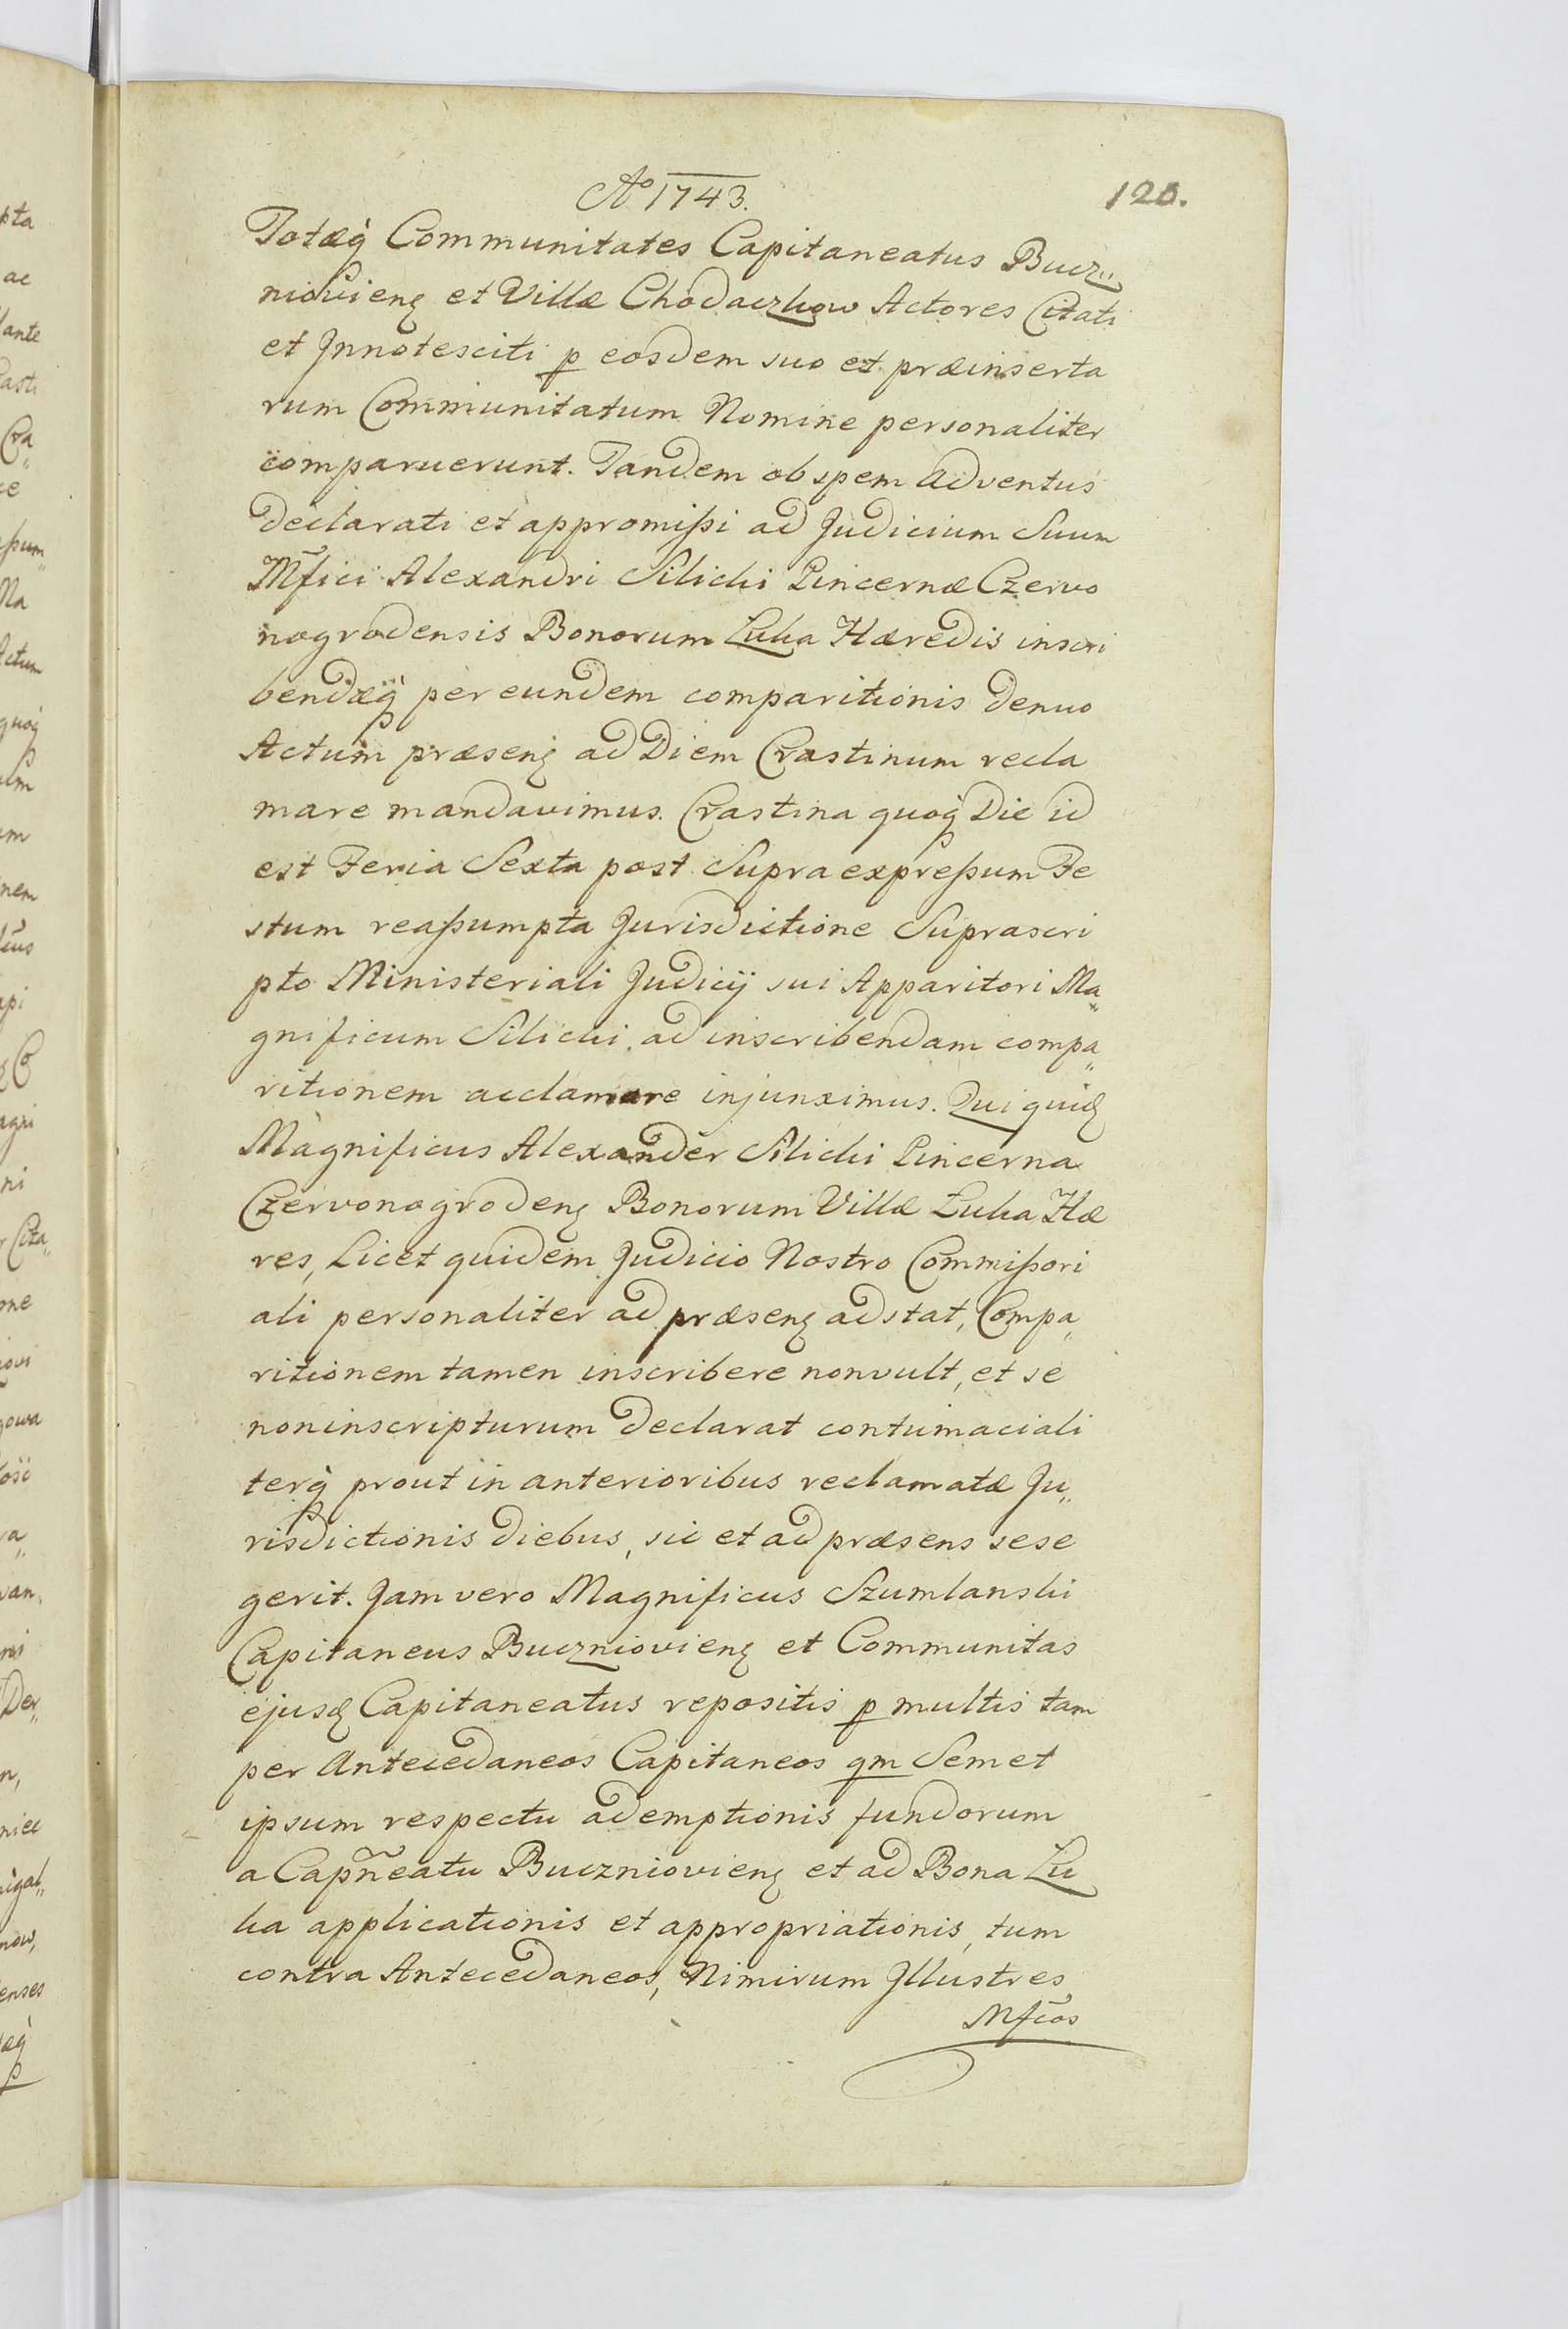 Aº 1743. 120.
Totæq́ Communitates Capitaneatus Bucz„
niovieñ et Villæ Chodaczkow Actores Citati
et Innotesciti p eosdem suo et præinserta
rum Communitatum Nomine personaliter
comparuerunt. Tandem ob spem Adventus
declarati et appromissi ad Judicium Suum
Mf̃ici Alexandri Silicki Pincernæ Czervo
nogrodensis Bonorum Łuka Hæredis inscri
bendæq́ per eundem comparitionis denuo
Actum præseñ ad Diem Crastinum recla
mare mandavimus. Crastina quoq́ Die id
est Feria Sexta post Supra expressum Fe
stum reassumpta Jurisdictione Suprascri
pto Ministeriali Judicij sui Apparitori Ma„
gnificum Silicki ad inscribendam compa„
ritionem acclamare injunximus. Qui quiđ
Magnificus Alexander Silicki Pincerna
Czervonogrodeñ Bonorum Villæ Łuka Hæ
res, Licet quidem Judicio Nostro Commissori
ali personaliter ad præseñ adstat, Compa„
ritionem tamen inscribere nonvult, et se
noninscripturum declarat contumaciali
terq́ prout in anterioribus reclamatæ Ju„
risdictionis diebus, sic et ad præsens sese
gerit. Jam vero Magnificus Szumlanski
Capitaneus Buczniovieñ et Communitas
ejusđ Capitaneatus repositis p multis tam
per Antecedaneos Capitaneos qm Semet
ipsum respectu ademptionis fundorum
a Capñeatu Buczniovieñ et ad Bona Łu
ka applicationis et appropriationis, tum
contra Antecedaneos, Nimirum Jllustres
Mfc̃os